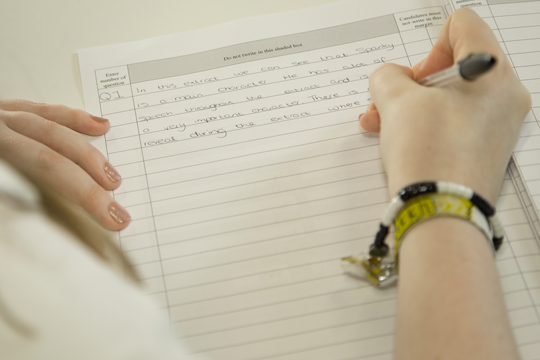 Do not write in this shaded box
Candidates must
not write in this
margin
Enter
number of
question
Q1
In this extract we can see that Spooky
is a main character. He has a lot of
speech throughout the extract and is
a very important character. There is
reveal during the extract where
number of
question